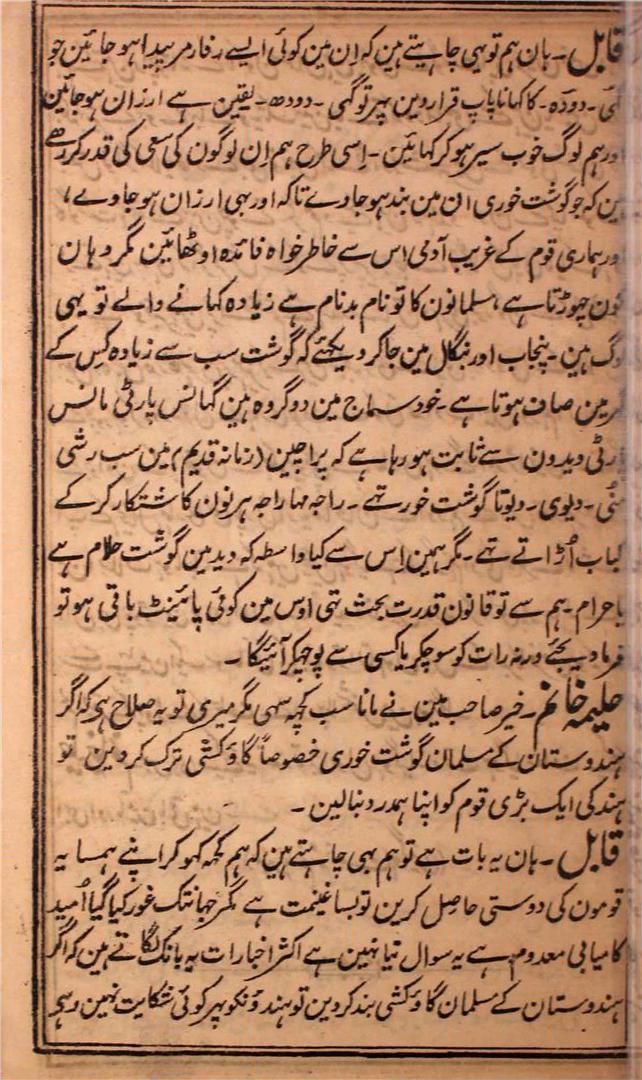 قابل۔ ہان ہم تو یہی چاہتے ہین کہ ان مین کوئی ایسے رفارمر پیدا ہو جائین جو
گھی۔ دودہ۔ کا کہانا پاپ قرار دین پہر تو گھی۔ دودھ۔ یقین ہے ارزان ہو جائین
اور ہم لوگ خوب سیر ہو کر کہائین۔ اِسی طرح ہم اِن لوگون کی سعی کی قدر کر رہے
ہین کہ جو گوشت خوری ان مین بند ہو جاوے تاکہ اور بہی ارزان ہو جاوے،
اور ہماری قوم کے غریب آدمی اس سے خاطر خواہ فائدہ اوٹھائین مگر وہان
کون چہوڑتا ہے، مسلمانون کا تو نام بدنام ہے زیادہ کہانے والے تو یہی
لوگ ہین۔ پنجاب اور بنگال مین جا کر دیکہئے کہ گوشت سب سے زیادہ کِس کے
گہر مین صاف ہوتا ہے۔ خود سماج مین دو گروہ ہین گہانس پارٹی مانس
پارٹی ویدون سے ثابت ہو رہا ہے کہ پراچین (زمانہ قدیم) مین سب رشی
مُنی۔ دیوی۔ دیوتا گوشت خور تہے۔ راجہ مہاراجہ ہرنون کا شتکار کر کے
کباب اُڑاتے تہے۔ مگر ہمین اِس سے کیا واسطہ کہ وید مین گوشت حلام ہے
یا حرام۔ ہم سے تو قانون قدرت بحث تہی اوس مین کوئی پائینٹ باقی ہو تو
فرما دیجئے ورنہ رات کو سوچکر یا کسی سے پوچہکر آئیگا۔
حلیمہ خانم۔ خیر صاحب مین نے مانا سب کچہ سہی مگر میری تو یہ صلاح ہی کہ اگر
ہندوستان کے مسلمان گوشت خوری خصوصاً گاؤ کشی ترک کر دین تو
ہند کی ایک بڑی قوم کو اپنا ہمدرد بنا لین۔
قابل۔ ہان یہ بات ہے تو ہم بہی چاہتے ہین کہ ہم کچہ کہو کر اپنے ہمسایہ
قومون کی دوستی حاصل کرین تو بسا غنیمت ہے مگر جہانتک غور کیا گیا اُمید
کامیابی معدوم ہے یہ سوال نیا نہین ہے اکثر اخبارات یہ بانگ لگاتے ہین کہ اگر
ہندوستان کے مسلمان گاؤ کشی بند کر دین تو ہندؤنکو پہر کوئی شکایت نہین رہے